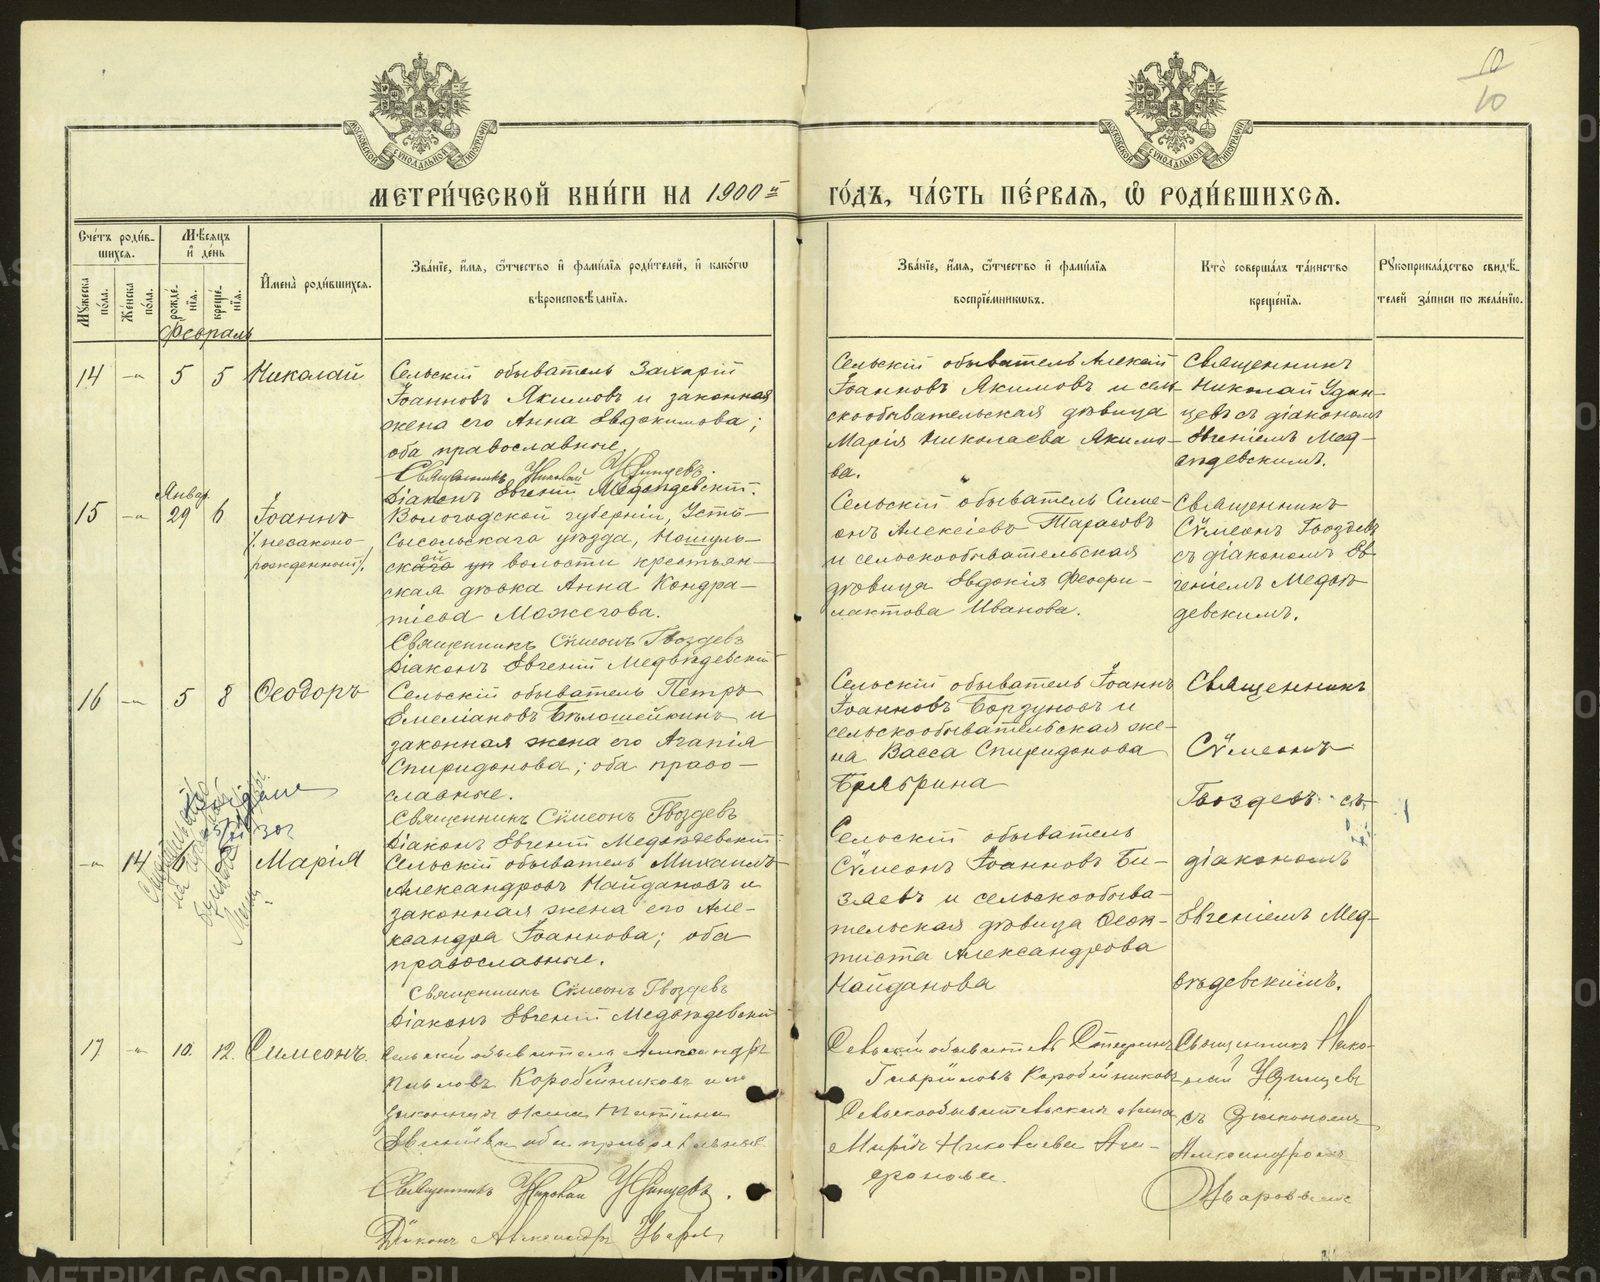 10
10
МЕТРИ́ЧЕСКОЙ КНИ́ГИ НА 1900й
ГО́ДЪ, ЧА́СТЬ ПЕ́РВАЯ, Ѡ РОДИ́ВШИХСЯ.
Сче́тъ роди́в-
шихся.
Мѣ́сяцъ
и҆ де́нь
Му́жеска
по́ла.
Же́нска
по́ла.
рожде́-
нїя.
креще́-
нїя.
И҆мена̀ роди́вшихся.
Зва́нїе, и҆́мя, ѻ҆́тчество и҆ фамѝлїя роди́телей, и҆ како́гѡ
вѣроисповѣ́данїя.
Зва́нїе, и҆́мя, ѻ҆́тчество и҆ фамѝлїя
воспрїе́мникѡвъ.
Кто̀ соверша́лъ та́инство
креще́нїя.
Рꙋкоприкла́дство свидѣ́-
телей за́писи по жела́нїю.
Февраль
14 -"- 5 5 Николай
Сельскій обыватель Захарій
Іоанновъ Якимовъ и законная
жена его Анна Евдокимова;
оба православные
Священникъ Николай Удинцевъ.
Діаконъ Евгеній Медвѣдевскій.
Сельскій обыватель Алексій
Іоанновъ Якимовъ и сель-
скообывательская дѣвица
Марія Николаева Якимо-
ва.
Священникъ
Николай Удин-
цевъ съ діакономъ
Евгеніемъ Мед-
вѣдевскимъ.
Январ.
15 -"- 29 6 Іоаннъ
(незаконо-
рожденный).
Вологодской губерніи, Усть-
Сысольскаго уѣзда, Ношуль-
ской волости крестьян-
ская дѣвка Анна Кондра-
тіева Можегова.
Священникъ Сѵмеонъ Гвоздевъ
Діаконъ Евгеній Медвѣдевскій
Сельскій обыватель Симе-
онъ Алексіевъ Тарасовъ
и сельскообывательская
дѣвица Евдокія Феофи-
лактова Иванова.
Священникъ
Сѵмеонъ Гвоздевъ
съ діакономъ Ев-
геніемъ Медвѣ-
девскимъ.
16 -"- 5 8 Ѳеодоръ
Сельскій обыватель Петръ
Емеліановъ Бѣлошейкинъ и
законная жена его Агапія
Спиридонова; оба право-
славные.
Священникъ Сѵмеонъ Гвоздевъ
Діаконъ Евгеній Медвѣдевскій
Сельскій обыватель Іоаннъ
Іоанновъ Бордуновъ и
сельскообывательская же-
на Васса Спиридонова
Священникъ
Сѵмеонъ
Гвоздевъ съ
-"- 14 Марія
Сельскій обыватель Михаилъ
Александровъ Найдановъ и
законная жена его Але-
ксандра Іоаннова; оба
православные.
Священникъ Сѵмеонъ Гвоздевъ
Діаконъ Евгеній Медвѣдевскій
Сельскій обыватель
Сѵмеонъ Іоанновъ Би-
заевъ и сельскообыва-
тельская дѣвица Ѳеок-
тиста Александрова
Найданова
діакономъ
Евгеніемъ Мед-
вѣдевскимъ.
17 -"- 10. 12. Симеонъ.
Сельскій обыватель Александръ
Павловъ Коробейниковъ и
законная жена Татіана
оба православные
Священникъ Николай Удинцевъ.
Діаконъ Александръ Уваровъ
Сельскій обыватель Стефанъ
Гавріиловъ Коробейниковъ
Сельскообывательская жена
Марія Николаева Ага-
фонова.
Священникъ Нико-
лай Удинцевъ
съ Діакономъ
Александромъ
Уваровымъ